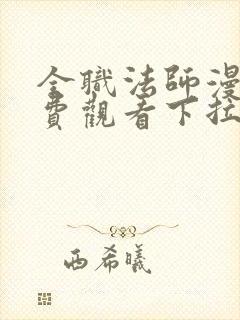 全職法師漫
費觀看下拉
西希曦